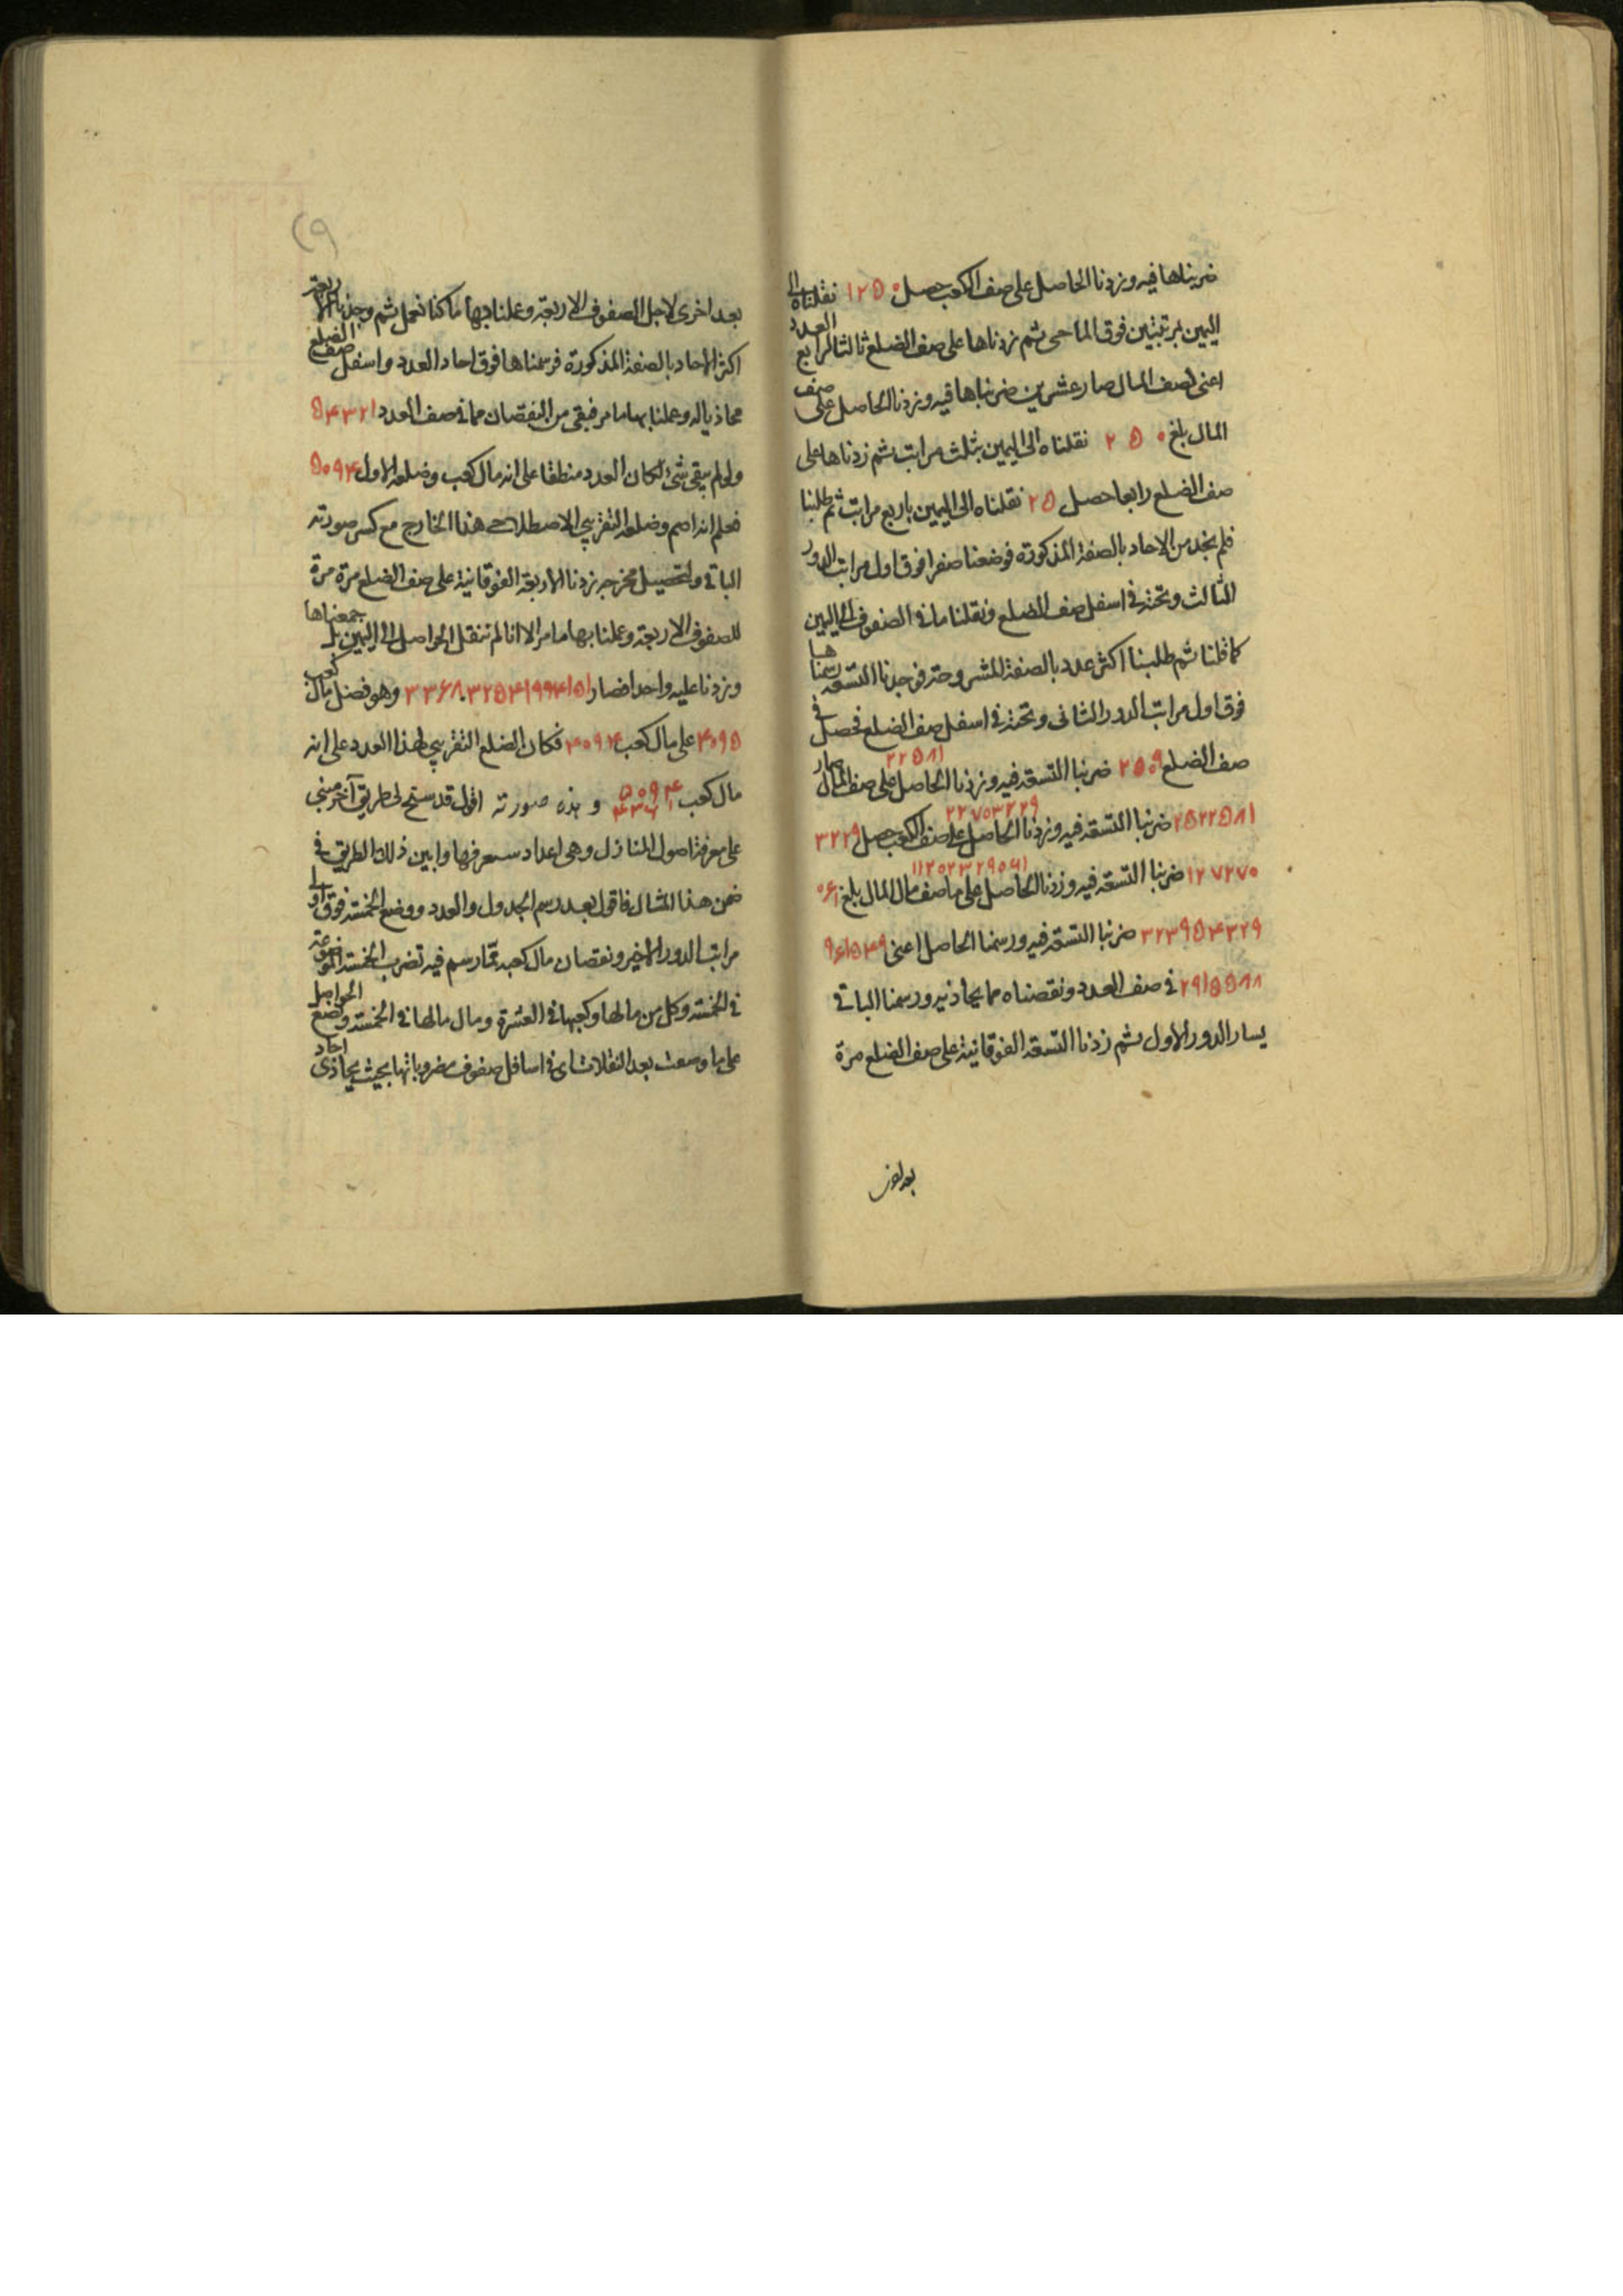 ضربناها فيه وزدنا الحاصل على صف الكعب حصل ١٢٥٠ نقلناه الى
اليمين بمرتبتين فوق الماحى ثم زدناها على صف الضلع ثالثا لمرابع العدد
اعنى لصف المال صار عشرين ضربناها فيه وزدنا الحاصل على صف
المال بلغ ٢٥٠ نقلناه الى اليمين بثلث مراتب ثم زدناها على
صف الضلع رابعا حصل ٢٥ نقلناه الى اليمين باربع مراتب ثم طلبنا
فلم نجد من الاحاد بالصفة المذكورة فوضعنا صفرا فوق اول مراتب الدور
الثالث وتحته فى اسفل صف الضلع ونقلنا ما فى الصفوف الى اليمين
كما قلنا ثم طلبنا اكثر عدد بالصفة المشروحة فوجدنا التسعة رسمناها
فوق اول مراتب الدور الثانى وتحته فى اسفل صف الضلع فحصل فى
صف الضلع ٢٥٠٩ ضربنا التسعة فيه وزدنا الحاصل ٢٢٥٨١ على صف المال صار
٢٥٢٢٥٨١ ضربنا التسعة فيه وزدنا الحاصل ٢٢٧٠٣٢٢٩ على صف الكعب حصل ٣٢٢٩
١٢٧٢٧٠ ضربنا التسعة فيه وزدنا الحاصل على ما صف مال المال بلغ ٠٦١
٣٢٣٩٥٤٣٢٩ ضربنا التسعة فيه ورسمنا الحاصل اعنى ٩٦١٥٤٩
٢٩١٥٥٨٨ فى صف العدد ونقصناه مما يحاذيه ورسمنا الباقى
يسار الدور الاول ثم زدنا التسعة الفوقانية على صف الضلع مرة
بعد اخرى
بعد اخرى لاجل الصفوف الاربعة وعملنا بها ما كنا نعمل ثم وجدنا الاربعة
اكثر الاحاد بالصفة المذكورة فرسمناها فوق احاد العدد واسفل صف الضلع
محاذيا له وعملنا بها ما مر فبقى من النقصان مما فى صف العدد ٥٤٣٢١
ولو لم يبقى شئ لكان العدد منطقا على انه مال كعب وضلعه الاول ٥٠٩٤
فعلم انه اصم وضلعه التقريبى الاصطلاحى هذا الخارج مع كسر صورته
الباقى ولتحصيل مخرجه زدنا الاربعة الفوقانية على صف الضلع مرة مرة
للصفوف الاربعة وعملنا بها ما مر الا انا لم ننقل الحواصل الى اليمين بل جمعناها
وزدنا عليه واحدا فصار ٣٣٦٨٠٣٢٥٤١٩٩٤١٥١ وهو فضل مال كعب
٤٠٩٥ على مال كعب ٤٠٩٤ فكان الضلع التقريبى لهذا العدد على انه
مال كعب ٥٠٩٤ و هذه صورته اقول قد سنح لى طريق آخر مبنى
على معرفة اصول المنازل وهى اعداد ستعرفها وابين ذلك الطريق فى
ضمن هذا المثال فاقول بعد رسم الجدول والعدد ووضع الخمسة فوق اولى
مراتب الدور الاخير ونقصان مال كعبه مما رسم فيه تضرب الخمسة الموضوعة
فى الخمسة وكل من مالها وكعبها فى العشرة ومال مالها فى الخمسة وتضع الحواصل
على ما وصفت بعد النقلات اى فى اسافل صفوف مضروباتها بحيث يحاذى احاد